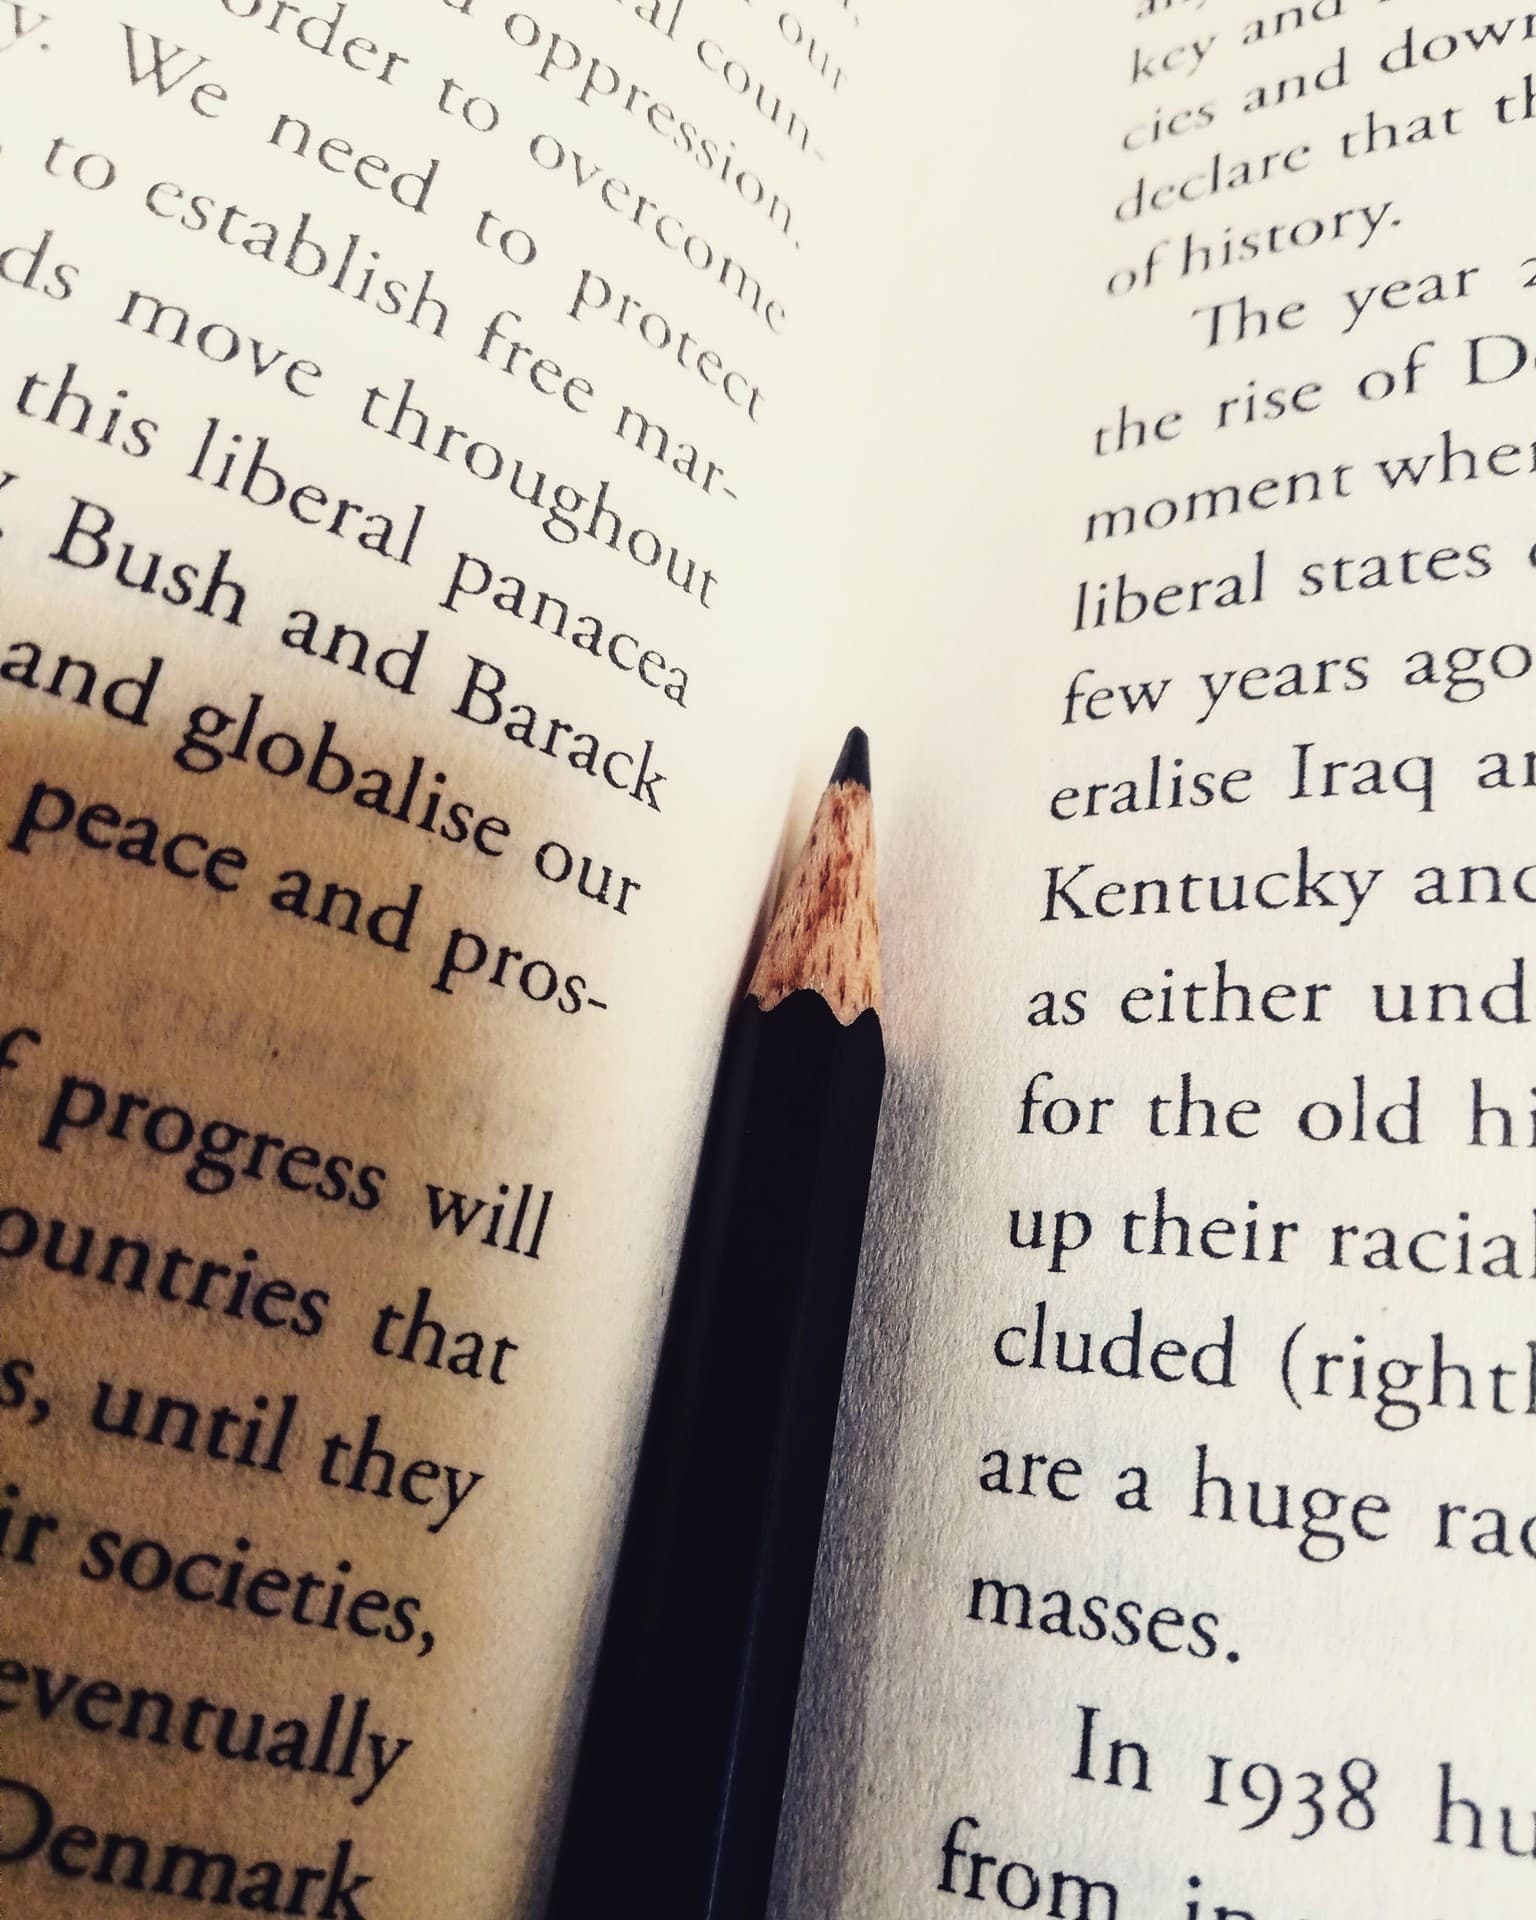 our
coun-
oppression.
order to overcome
We need to protect
to establish free mar-
move throughout
this liberal panacea
Bush and Barack
and globalise our
peace and pros-
progress will
that
until they
societies,
eventually
Denmark
key and
cies and down
declare that
of history.
The year
the rise of
moment
liberal states
few years ago
eralise Iraq
Kentucky and
as either
for the old
up their racial
cluded
are a huge
masses.
In 1938
from